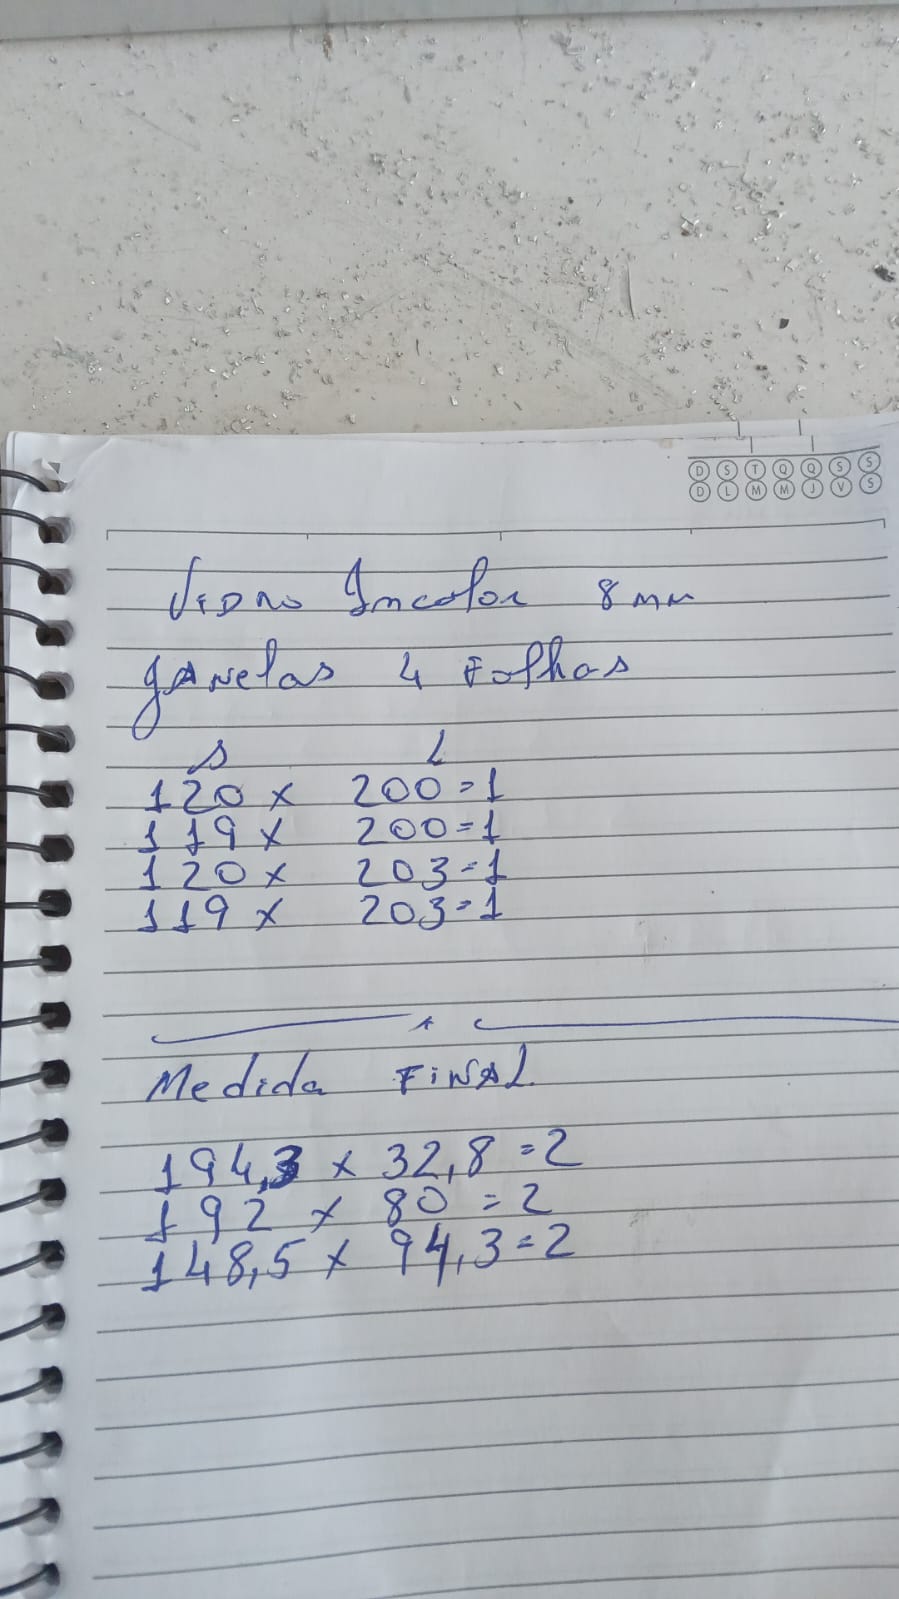 D S T Q Q S S
D L M M J V S
Vidro Incolor 8mm
Janelas 4 Folhas
A L
120 x 200=1
119 x 200=1
120 x 203=1
119 x 203=1
Medida Final
194,3 x 32,8=2
192 x 80=2
148,5 x 94,3=2